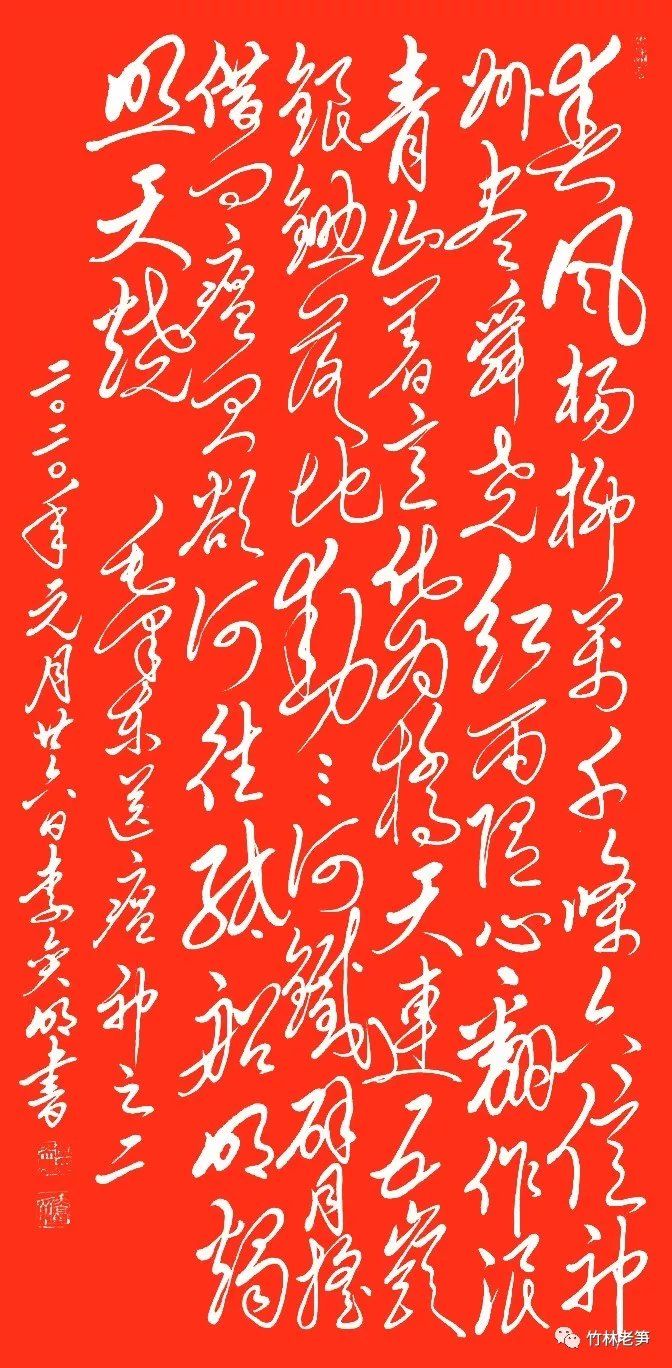 春风杨柳萬千條六億神
州尽舜尧红雨随心翻作浪
青山着意化为橋天連五嶺
銀鋤落地動三河鐵臂搖
借问瘟君欲何往纸船明燭
照天燒 毛泽东送瘟神之二
二〇二〇年元月廿六日李明书
竹林老笋